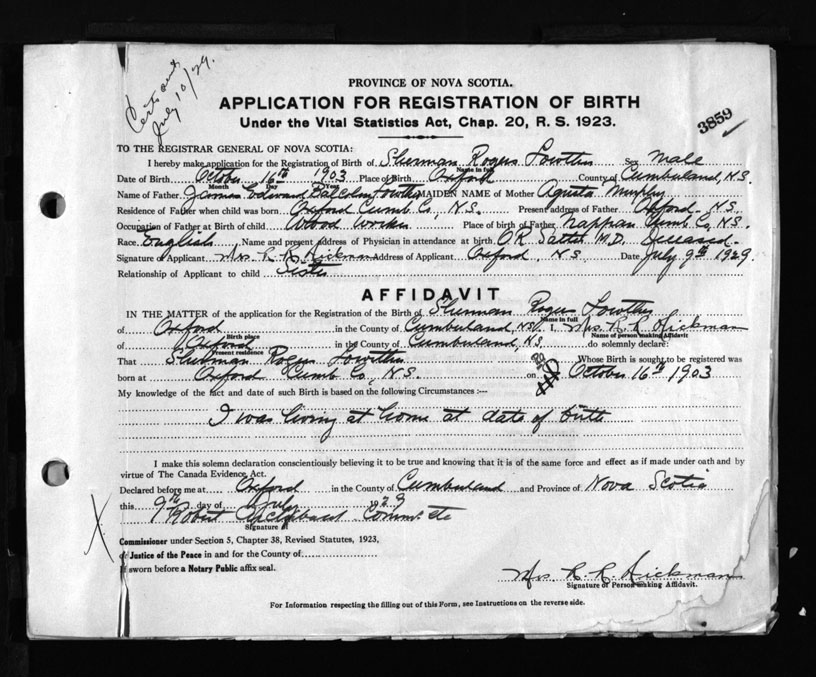 Certs sent
July 10/29.
PROVINCE OF NOVA SCOTIA.
APPLICATION FOR REGISTRATION OF BIRTH
Under the Vital Statistics Act, Chap. 20, R. S. 1923.
3859
TO THE REGISTRAR GENERAL OF NOVA SCOTIA:
I hereby make application for the Registration of Birth of Sherman Rogers Lowther Sex Male
Name in full
Date of Birth October 16th 1903 Place of Birth Oxford County of Cumberland, N.S.
Month Day Year
Name of Father James Edward Balcolm Lowther MAIDEN NAME of Mother Agusta Murphy
Residence of Father when child was born Oxford Cumb Co, N.S. Present address of Father Oxford N.S.
Occupation of Father at Birth of child Wood Worker Place of birth of Father Nappan Cumb Co, N.S.
Race English Name and present address of Physician in attendance at birth M.D. Deceased
Signature of Applicant Mrs. R R Hickman Address of Applicant Oxford, N.S. Date July 9th 1929.
Relationship of Applicant to child Sister
AFFIDAVIT
IN THE MATTER of the application for the Registration of the Birth of Sherman Rogers Lowther
Name in full
of Oxford in the County of Cumberland, NS. I, Mrs. R R Hickman
Birth place Name of person making Affidavit
of Oxford in the County of Cumberland, N.S. do solemnly declare:
Present residence
That Sherman Rogers Lowther Whose Birth is sought to be registered was
born at Oxford Cumb Co, N.S. on October 16th 1903
My knowledge of the fact and date of such Birth is based on the following Circumstances :—
I was living at home at date of birth
I make this solemn declaration conscientiously believing it to be true and knowing that it is of the same force and effect as if made under oath and by
virtue of The Canada Evidence Act.
Declared before me at Oxford in the County of Cumberland and Province of Nova Scotia
this 9th day of July 1929
Robert Archibald
Signature of
Commissioner under Section 5, Chapter 38, Revised Statutes, 1923,
or Justice of the Peace in and for the County of
If sworn before a Notary Public affix seal.
Mrs. R. R. Hickman
Signature of Person making Affidavit.
For Information respecting the filling out of this Form, see Instructions on the reverse side.